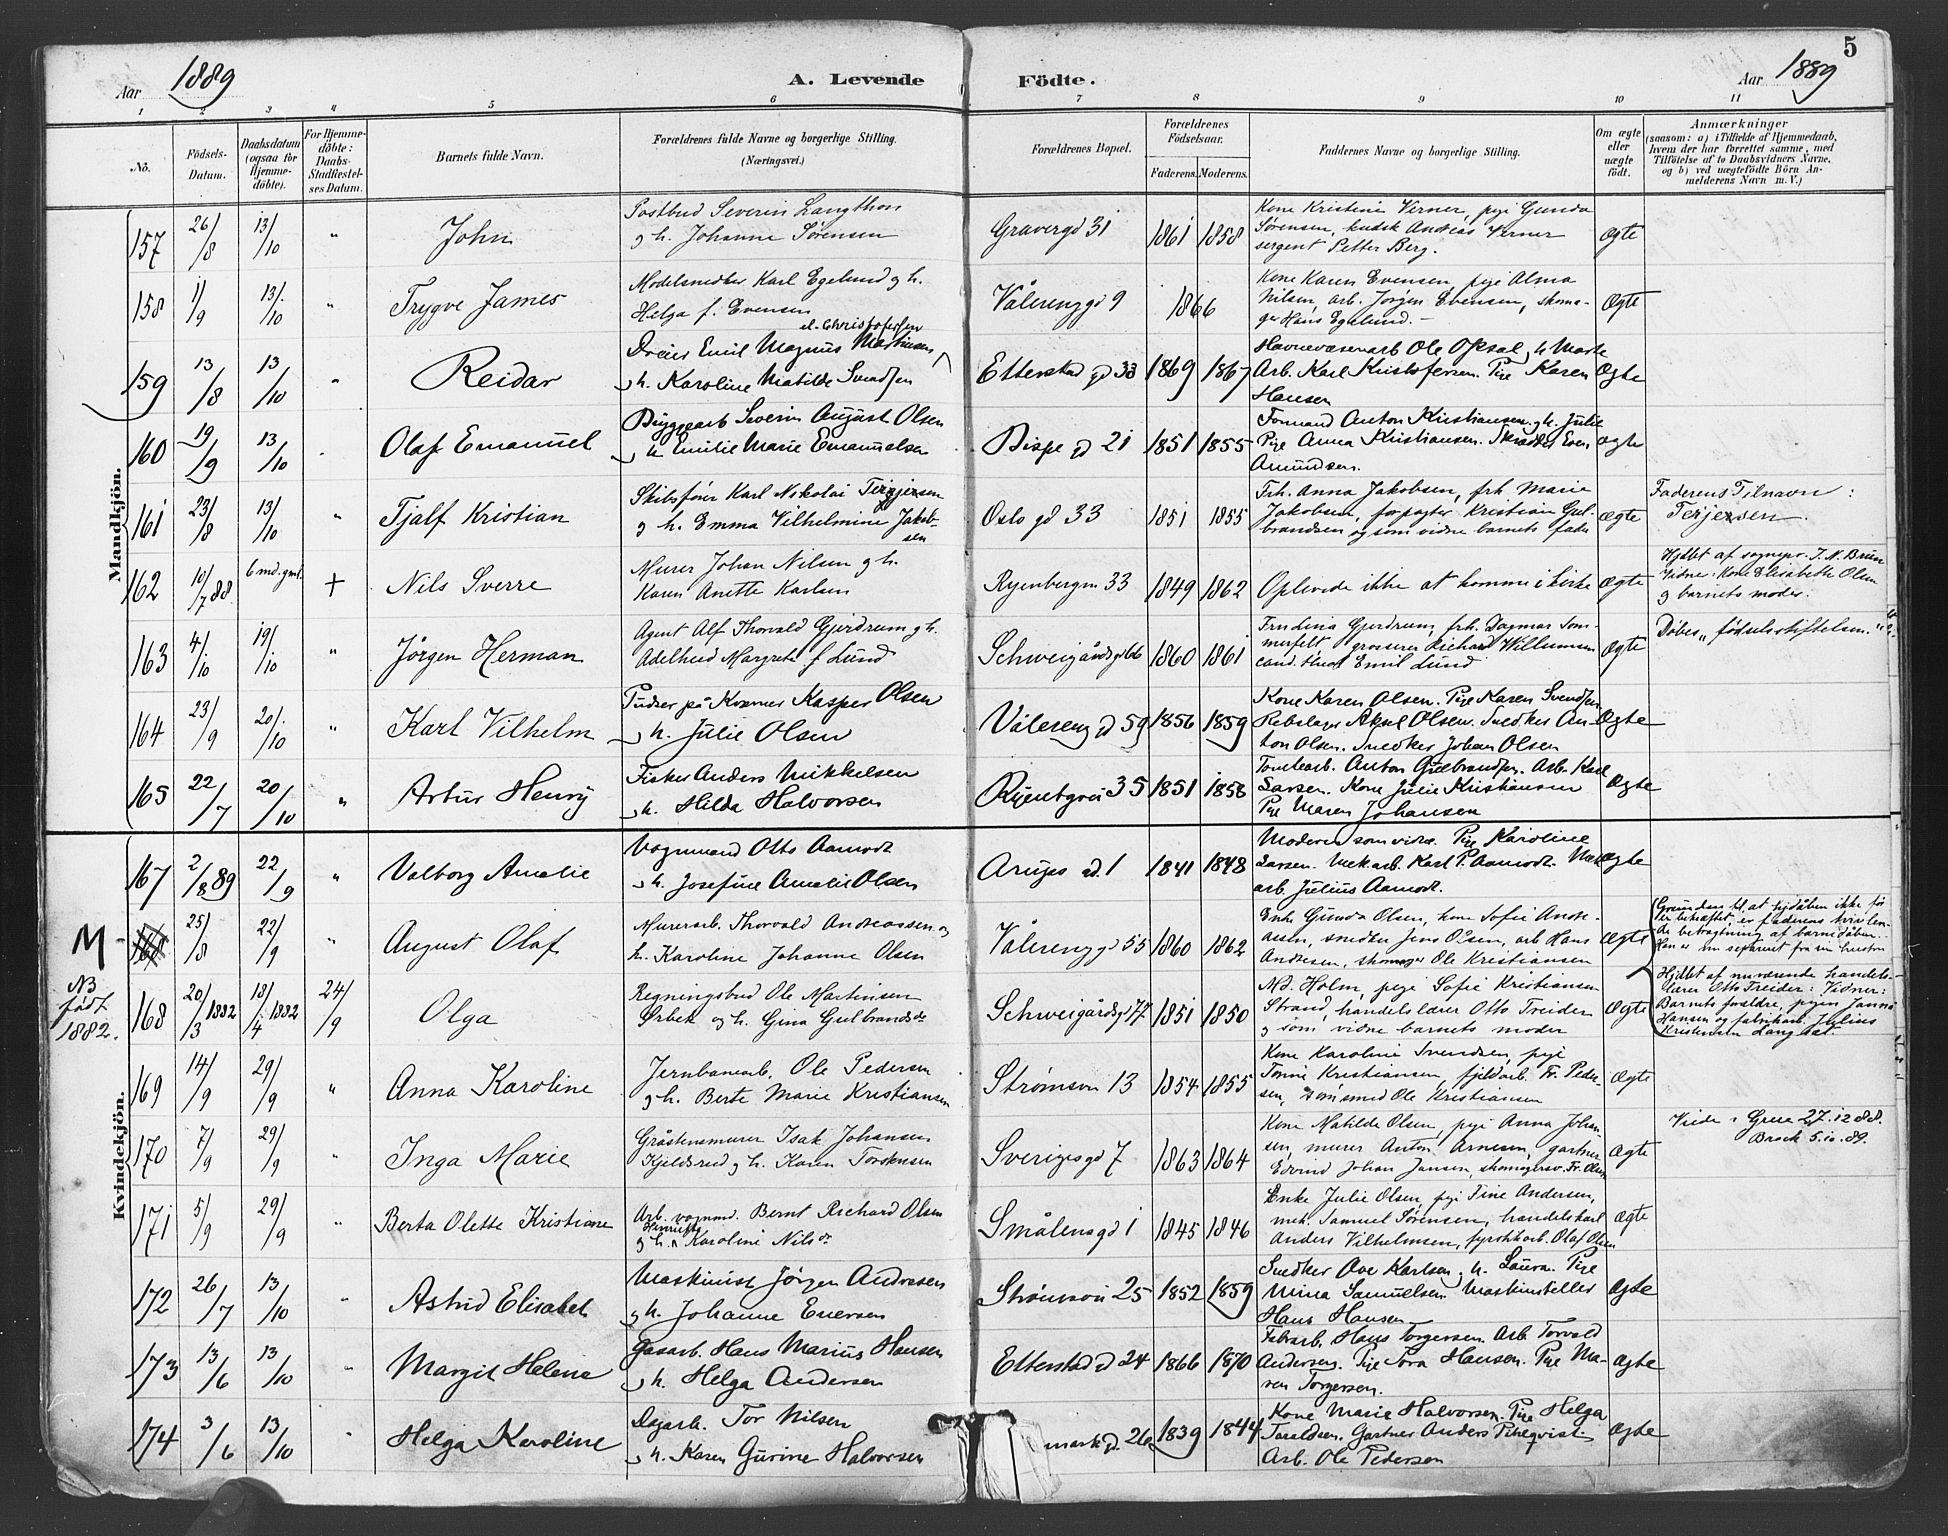 5
Aar 1889
A. Levende Födte.
Aar 1889
1 2 3 4 5 6 7 8 9 10 11
No.
Födsels-Datum.
Daabsdatum (ogsaa for Hjemme-döbte).
For Hjemme-döbte: Daabs-Stadfæstel-ses Datum.
Barnets fulde Navn.
Forældrenes fulde Navne og borgerlige Stilling.
(Næringsvei.)
Forældrenes Bopæl.
Forældrenes Födselsaar.
Faderens. Moderens.
Faddernes Navne og borgerlige Stilling.
Om ægte eller uægte födt.
Anmærkninger
(saasom: a) i Tilfælde af Hjemmedaab, hvem der har forrettet samme, med Tilföielse af to Daabsvidners Navne, og b) ved uægtefödte Börn An-melderens Navn m. V.)
Mandkjön.
157 26/8 13/10 " John
Postbud Severin Langthon
g h. Johanne Sørensen
Gravergd 31 1861 1858
Kone Kristine Verner, pige Gunda
Sørensen, kudsk Andreas Verner
sergent Petter Berg.
Ægte
158 1/9 13/10 " Trygve James
Modelsnedker Karl Egelund g h.
Helga f. Evensen
Vålerenggd 9 1866
Kone Karen Evensen, pige Alma
Nilsen, arb. Jørgen Evensen, skoma-
ger Hans Egelund.
Ægte
159 13/8 13/10 " Reidar
el. Christofersen
Dreier Emil Magnus Martinsen
h. Karoline Matilde Svendsen
Etterstad gd 33 1869 1867
Havnevæsenarb Ole Opsal, h Marte
Arb. Karl Kristofersen. Pige Karen
Hansen
Ægte
160 19/9 13/10 Olaf Emanuel
Bryggearb Severin August Olsen
h Emilie Marie Emanuelsen
Bispe gd 21 1851 1855
Formand Anton Kristiansen g h. Julie
Pige Anna Kristiansen. Skrædder Even
Amundsen.
Ægte
161 23/8 13/10 " Tjalf Kristian
Skibsfører Karl Nikolai Terjesen
g h. Emma Vilhelmine Jakob-
sen
Oslo gd 33 1851 1855
Frh. Anna Jakobsen, frh. Marie
Jakobsen, forpagter Kristian Gul-
brandsen og som vidne barnets fader
Ægte
Faderens Tilnavn:
Terjesen.
162 10/7 88 6 md. gml. + Nils Sverre
Murer Johan Nilsen g h.
Karen Anette Karlsen
Ryenbergvn 33 1849 1862
Oplevede ikke at komme i kirke
Ægte
Hjdbt af sognepr. J. N. Brun
Vidner: Kone Elisabeth Olsen
g barnets moder.
163 4/10 19/10 " Jörgen Herman
Agent Alf Thorvald Gjerdrum g h.
Adelheid Margrete f Lund
Schweigårdsgd 66 1860 1861
Fru Lina Gjerdrum, frh. Dagmar Som-
merfelt, grosserer Richard Willumsen
cand. Emil Lund
Ægte
Döbes „fødselsstiftelsen."
164 23/9 20/10 " Karl Vilhelm
Pudser på Kværner Kasper Olsen
h. Julie Olsen
Vålereng gd 59 1856 1859
Kone Karen Olsen. Pige Karen Svendsen
Rebslager Aksel Olsen. Snedker An-
ton Olsen. Snedker Johan Olsen
Ægte
165 22/7 20/10 " Artur Henry
Fisker Anders Mikkelsen
h. Hilda Halvorsen
Ryenbgvei 35 1851 1858
Tomtearb. Anton Gulbrandsen. Arb. Karl
Larsen. Kone Julie Kristiansen
Pige Maren Johansen
Ægte
Kvindekjön.
167 2/8 89 22/9 " Valborg Amalie
Vognmand Otto Aamodt
h. Josefine Amalie Olsen
Arups gd. 1 1841 1848
Moderen som vidne. Pige Karoline
Larsen. Mekarb. Karl P. Aamodt. Mek
arb. Julius Aamodt.
Ægte
M- 25/8 22/9 " August Olaf
Murerarb. Thorvald Andreassen g
h. Karoline Johanne Olsen
Vålerenggd 55 1860 1862
Enke Gunda Olsen, kone Sofie Andre-
asen, snedker Jens Olsen, arb Hans
Andresen, skomager Ole Kristiansen
Ægte
NB
født
1882.
168 20/3 1882 18/4 1882 24/9 Olga
Regningsbud Ole Martinsen
Ørbek g h. Gina Gulbrandsdr
Schweigårdsgd 77 1851 1850
Md. Holm, pige Sofie Kristiansen
Strand, handelslærer Otto Treider
g som vidne barnets moder
Ægte
Grunden til at hjdåben ikke før
er bekræftet er faderens tvivlen-
de betragtning af barnedåben.
Han er nu separeret fra sin hustru
Hjdbt af nuværende handels-
lærer Otto Treider: Vidner:
Barnets forældre, pigen Janna
Hansen og fabrikarb. Julius
Kristensen Langsæt.
169 14/9 29/9 " Anna Karoline
Jernbanearb. Ole Pedersen
g h. Berte Marie Kristiansen
Strømsvn 13 1854 1855
Kone Karoline Svendsen, pige
Tomine Kristiansen, fjeldarb. Fr. Peder-
sen, rørsmed Ole Kristiansen
Ægte
170 7/9 29/9 " Inga Marie
Gråstensmurer Isak Johansen
Kjeldsrud g h. Karen Torstensen
Sverigesgd 7 1863 1864
Kone Matilde Olsen, pige Anna Johan-
sen, murer Anton Arnesen, gartner
Edvind Johan Jansen, skomagersv. Fr. Olsen
Ægte
Viede i Grue 27.12 88.
Brock 5.10.89.
171 5/9 29/9 " Berta Olette Kristiane
Arb. vognmd. Bernt Richard Olsen
Henriette
g h. Karoline Nilsdr
Smålensgd 1 1845 1846
Enke Julie Olsen, pige Tine Andersen,
mek. Samuel Sørensen, handelskarl
Anders Vilhelmsen, fyrstikarb. Olaf Olsen
Ægte
172 26/7 13/10 " Astrid Elisabet
Maskinist Jørgen Andresen
g h. Johanne Enersen
Strömsvei 25 1852 1859
Snedker Ove Karlsen, h. Laura. Pige
Mina Samuelsen Maskinsteller
Hans Hansen
Ægte
173 13/6 13/10 " Margit Helene
Gasarb. Hans Marius Hansen
h. Helga Andersen
Etterstad gd 24 1866 1870
Fabrarb. Hans Torgersen. Arb Torvald
Andersen. Pige Tora Hansen. Pige Ma-
ren Torgersen.
Ægte
174 3/6 13/10 " Helga Karoline
Dagarb. Tor Nilsen
h. Karen Gurine Halvorsen
markgd. 26 1839 1844
Kone Marie Halvorsen. Pige Helga
Taraldsen. Gartner Anders Pihlqvist.
Arb. Ole Pedersen
Ægte